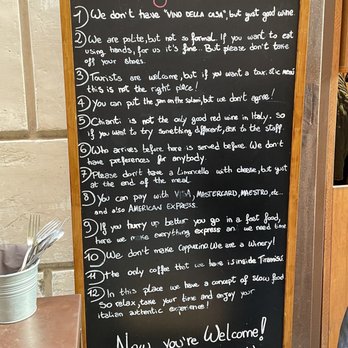 1) We don't have "VINO DELLA CASA", but just good wine
2) We are polite, but not so formal. If you want to eat
using hands, for us it's fine. But please don't take
off your shoes.
3) Tourists are welcome, but if you want a tour
this is not the right place!
4) You can put the jam on the salami, but we don't agree!
5) Chianti is not the only good red wine in Italy. So
if you want to try something different, ask to the staff.
6) Who arrives before here is served before. We don't
have preferences for anybody.
7) Please don't have a Limoncello with cheese, but just
at the end of the meal.
8) You can pay with VISA, MASTERCARD, MAESTRO, etc..
and also AMERICAN EXPRESS.
9) If you hurry up better you go in a fast food,
here we make everything express and we need time
10) We don't make Cappuccino. We are a Winery!
11) The only coffee that we have is inside Tiramisù
12) In this place we have a concept of slow food
so relax, take your time and enjoy your
italian authentic experience!
Now you're Welcome!